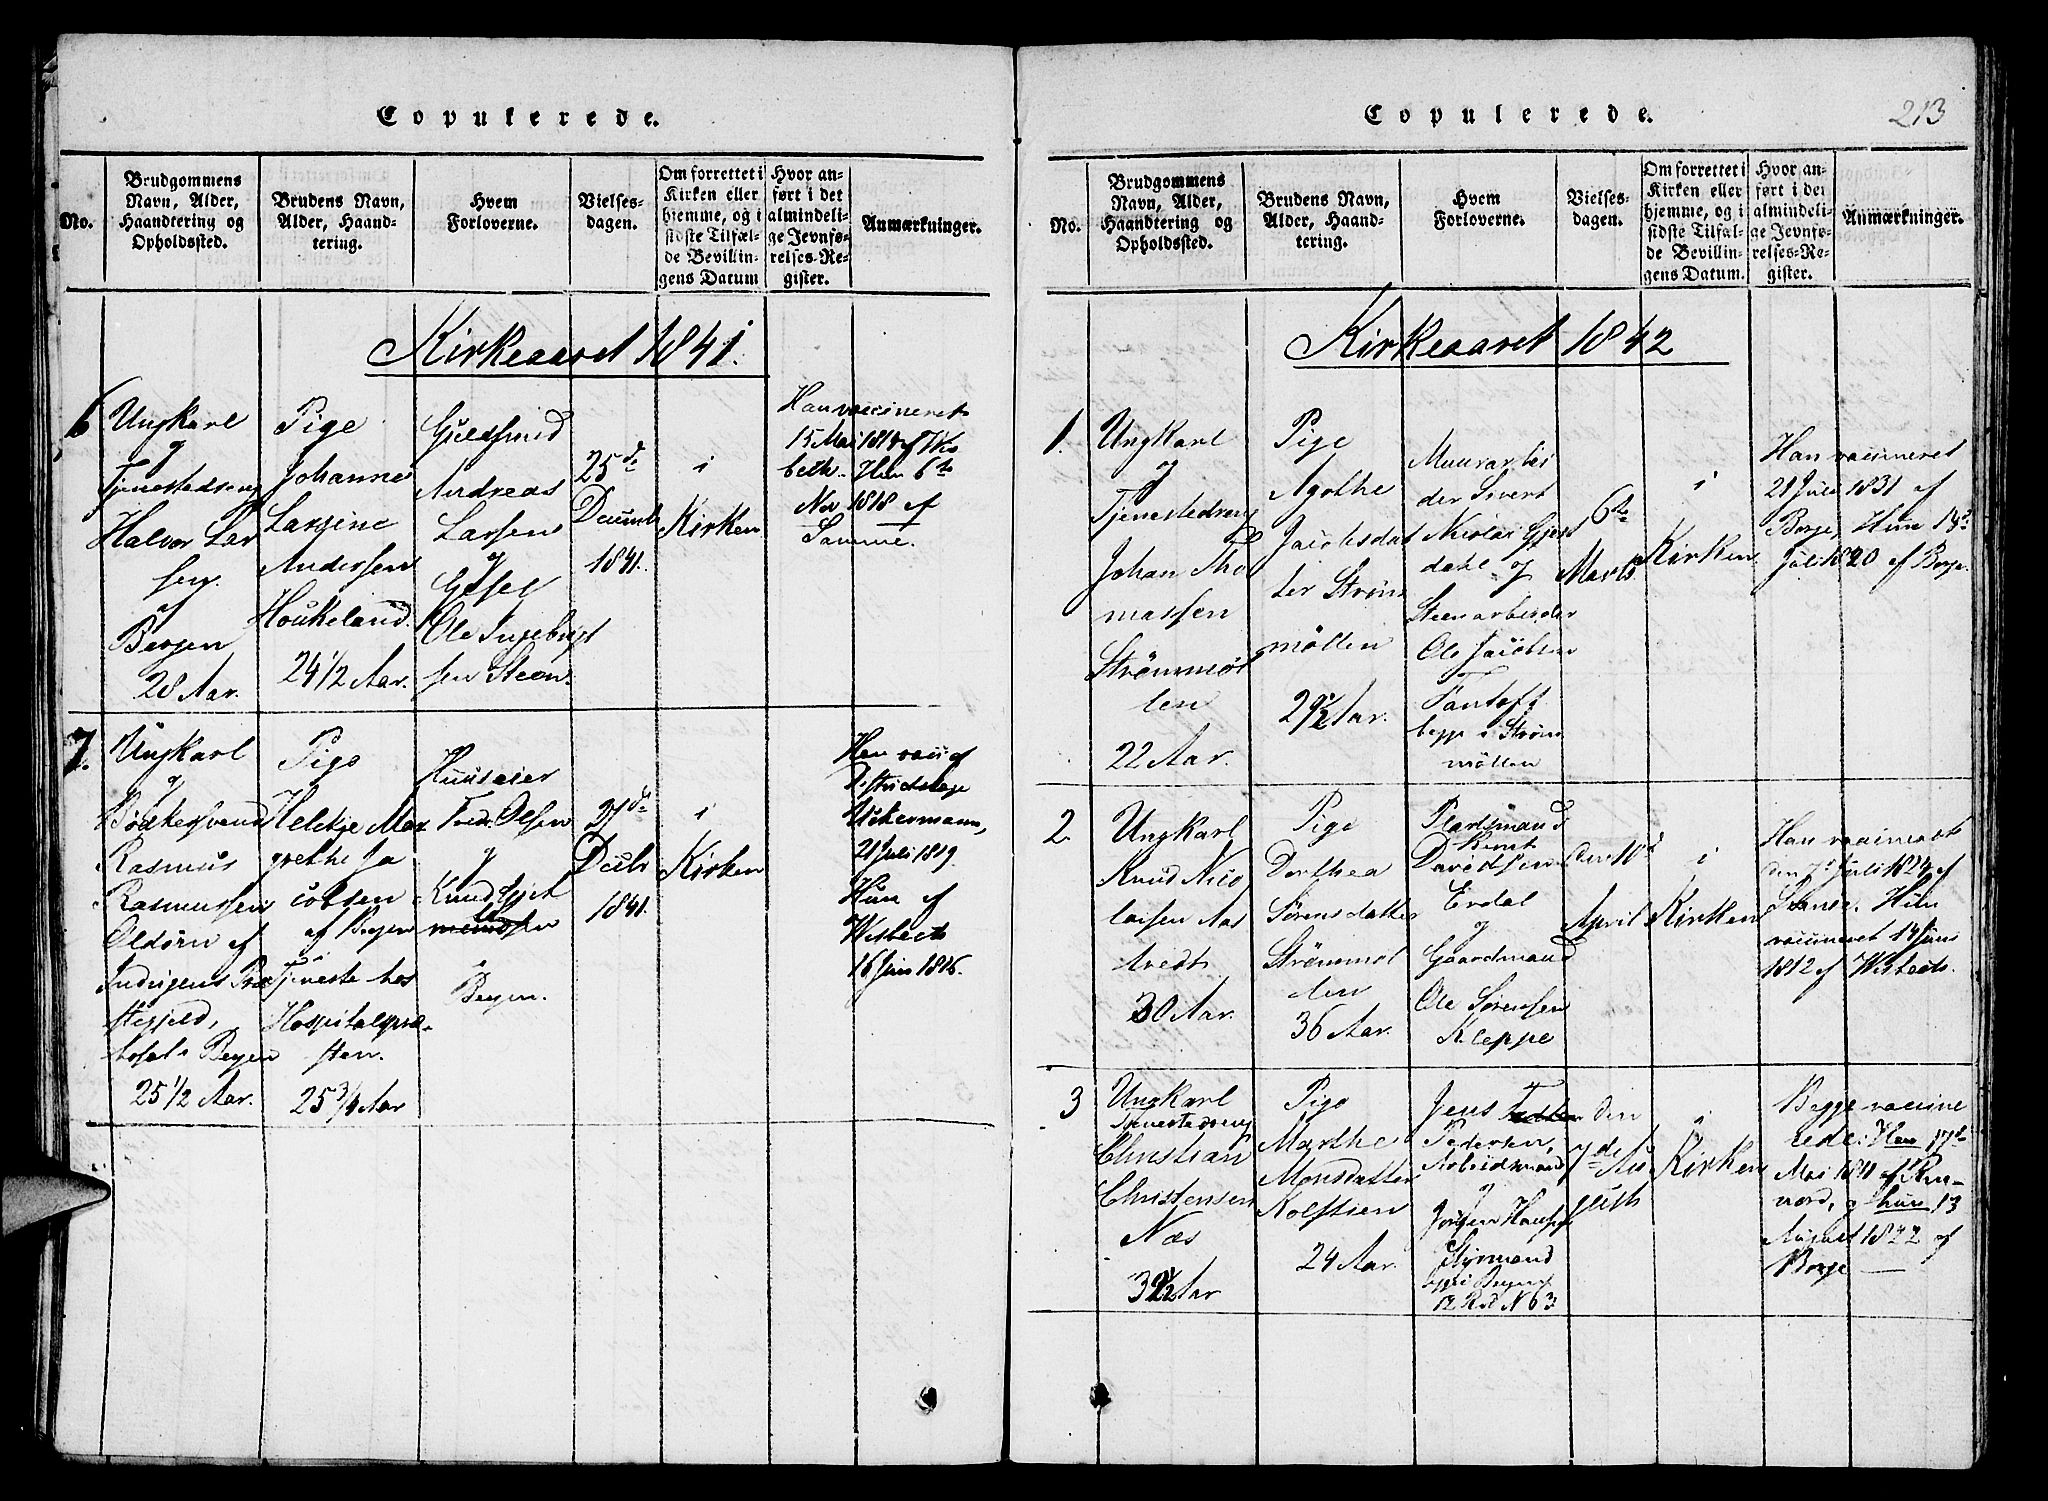 Copulerede.
No.
Brudgommens Navn, Alder, Haandtering og Opholdssted.
Brudens Navn, Alder, Haandtering.
Hvem Forloverne.
Vielsesdagen.
Om forrettet i Kirken eller hjemme, og i sidste Tilfælde Bevillingens Datum
Hvor anført i det almindelige Jevnførelses-Register.
Anmærkninger.
Kirkeaaret 1841.
6
Ungkarl
og
Tjenestedreng
Halvor Lar
sen.
af
Bergen
28 Aar.
Pige
Johanne
Larsine
Andersen
Houkeland.
24 1/2 Aar.
Guldsmed
Andreas
Larsen
og
Ole Ingebrigt
sen Steen.
25de
Decembr
1841.
i
Kirken
Han vaccineret
15 Mai 1814 af Wis
beth. Hun 6te
Nov 1818 af
Samme.
7.
Ungkarl
og
Bødkersvend
Rasmus
Rasmussen
Oldørn af
Indvigens Præ
stegjeld,
Bergen
25 1/2 Aar.
Pige
Helekje Mar
grethe Ja
cobsen
af Bergen
Tjeneste hos
Hospitalspræ-
sten.
25 3/4 Aar
Huuseier
Fred. Olsen
og
Knud
Bergen.
27de
Decbr
1841.
i
Kirken
Han vacc af
Districtslæge
Uckermann,
21 Juli 1819.
Hun af
Wisbech
16 Juni 1816.
Copulerede.
213
No.
Brudgommens Navn, Alder, Haandtering og Opholdssted.
Brudens Navn, Alder, Haandtering.
Hvem Forloverne.
Vielsesdagen.
Om forrettet i Kirken eller hjemme, og i sidste Tilfælde Bevillingens Datum.
Hvor anført i det almindelige Jevnførelses-Register.
Anmærkninger.
Kirkeaaret 1842
1.
Ungkarl
og
Tjenestedreng
Johan Tho
massen
Strømmøl
len
22 Aar.
Pige
Agathe
Jacobsdat
ter Strøm
møllen
29 1/2 Aar.
Muurarbei
der Sivert
Nicolai Gjest
dahl og
Steenarbeider
Ole Jacobsen
Fantoft
begge i Strøm
møllen
6te
Marts
i
Kirken
Han vaccineret
21 Juli 1831 af
Borge, Hun 19de
Juli 1820 af Borge.
2
Ungkarl
Knud Nico
laisen Aas
tvedt
30 Aar.
Pige
Dorthea
Sørensdatter
Strømmøl
len
36 Aar.
Pladsmand
Bent
Davidsen
Erdal
og
Gaardmand
Ole Sørensen
Kleppe
den 10de
April
i
Kirken
Han vaccineret
den 7de Juli 1824 af
Hun
vaccineret 14 Juni
1812 af Wisbech.
3
Ungkarl
Tjenestedreng
Christian
Christensen
Næs
32 1/2 Aar
Pige
Marthe
Monsdatter
Kolstien
24 Aar.
Jens
Pedersen,
Arbeidsmand
og
Jørgen
Styrmand
begge i Bergen
12 Rode N 63
den
7de Au
gusts
i
Kirken
Begge vaccine
rede: Han 17de
Mai 1811 af
og hun 13
August 1822 af
Borge